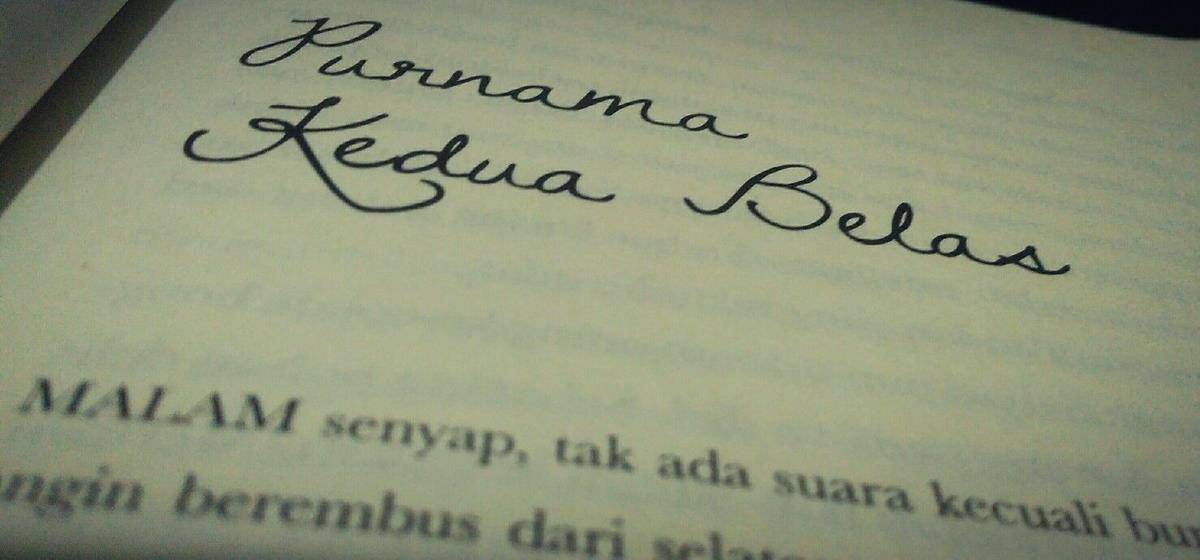 Purnama
Kedua Belas
MALAM senyap, tak ada suara kecuali
berembus dari